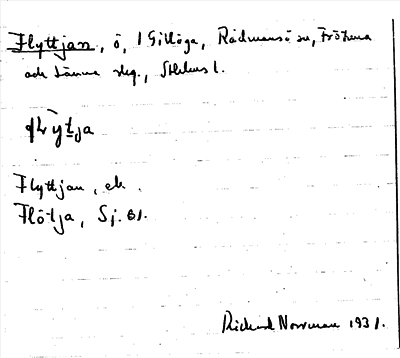 Flyttjan, ö, I Gillöga, Rådmansö sn, Frötuna
och Länna skg., Sthlms l.
Flyttjan, ek.
Flötja, Sj. 61.
Rickard Norrman 1931.